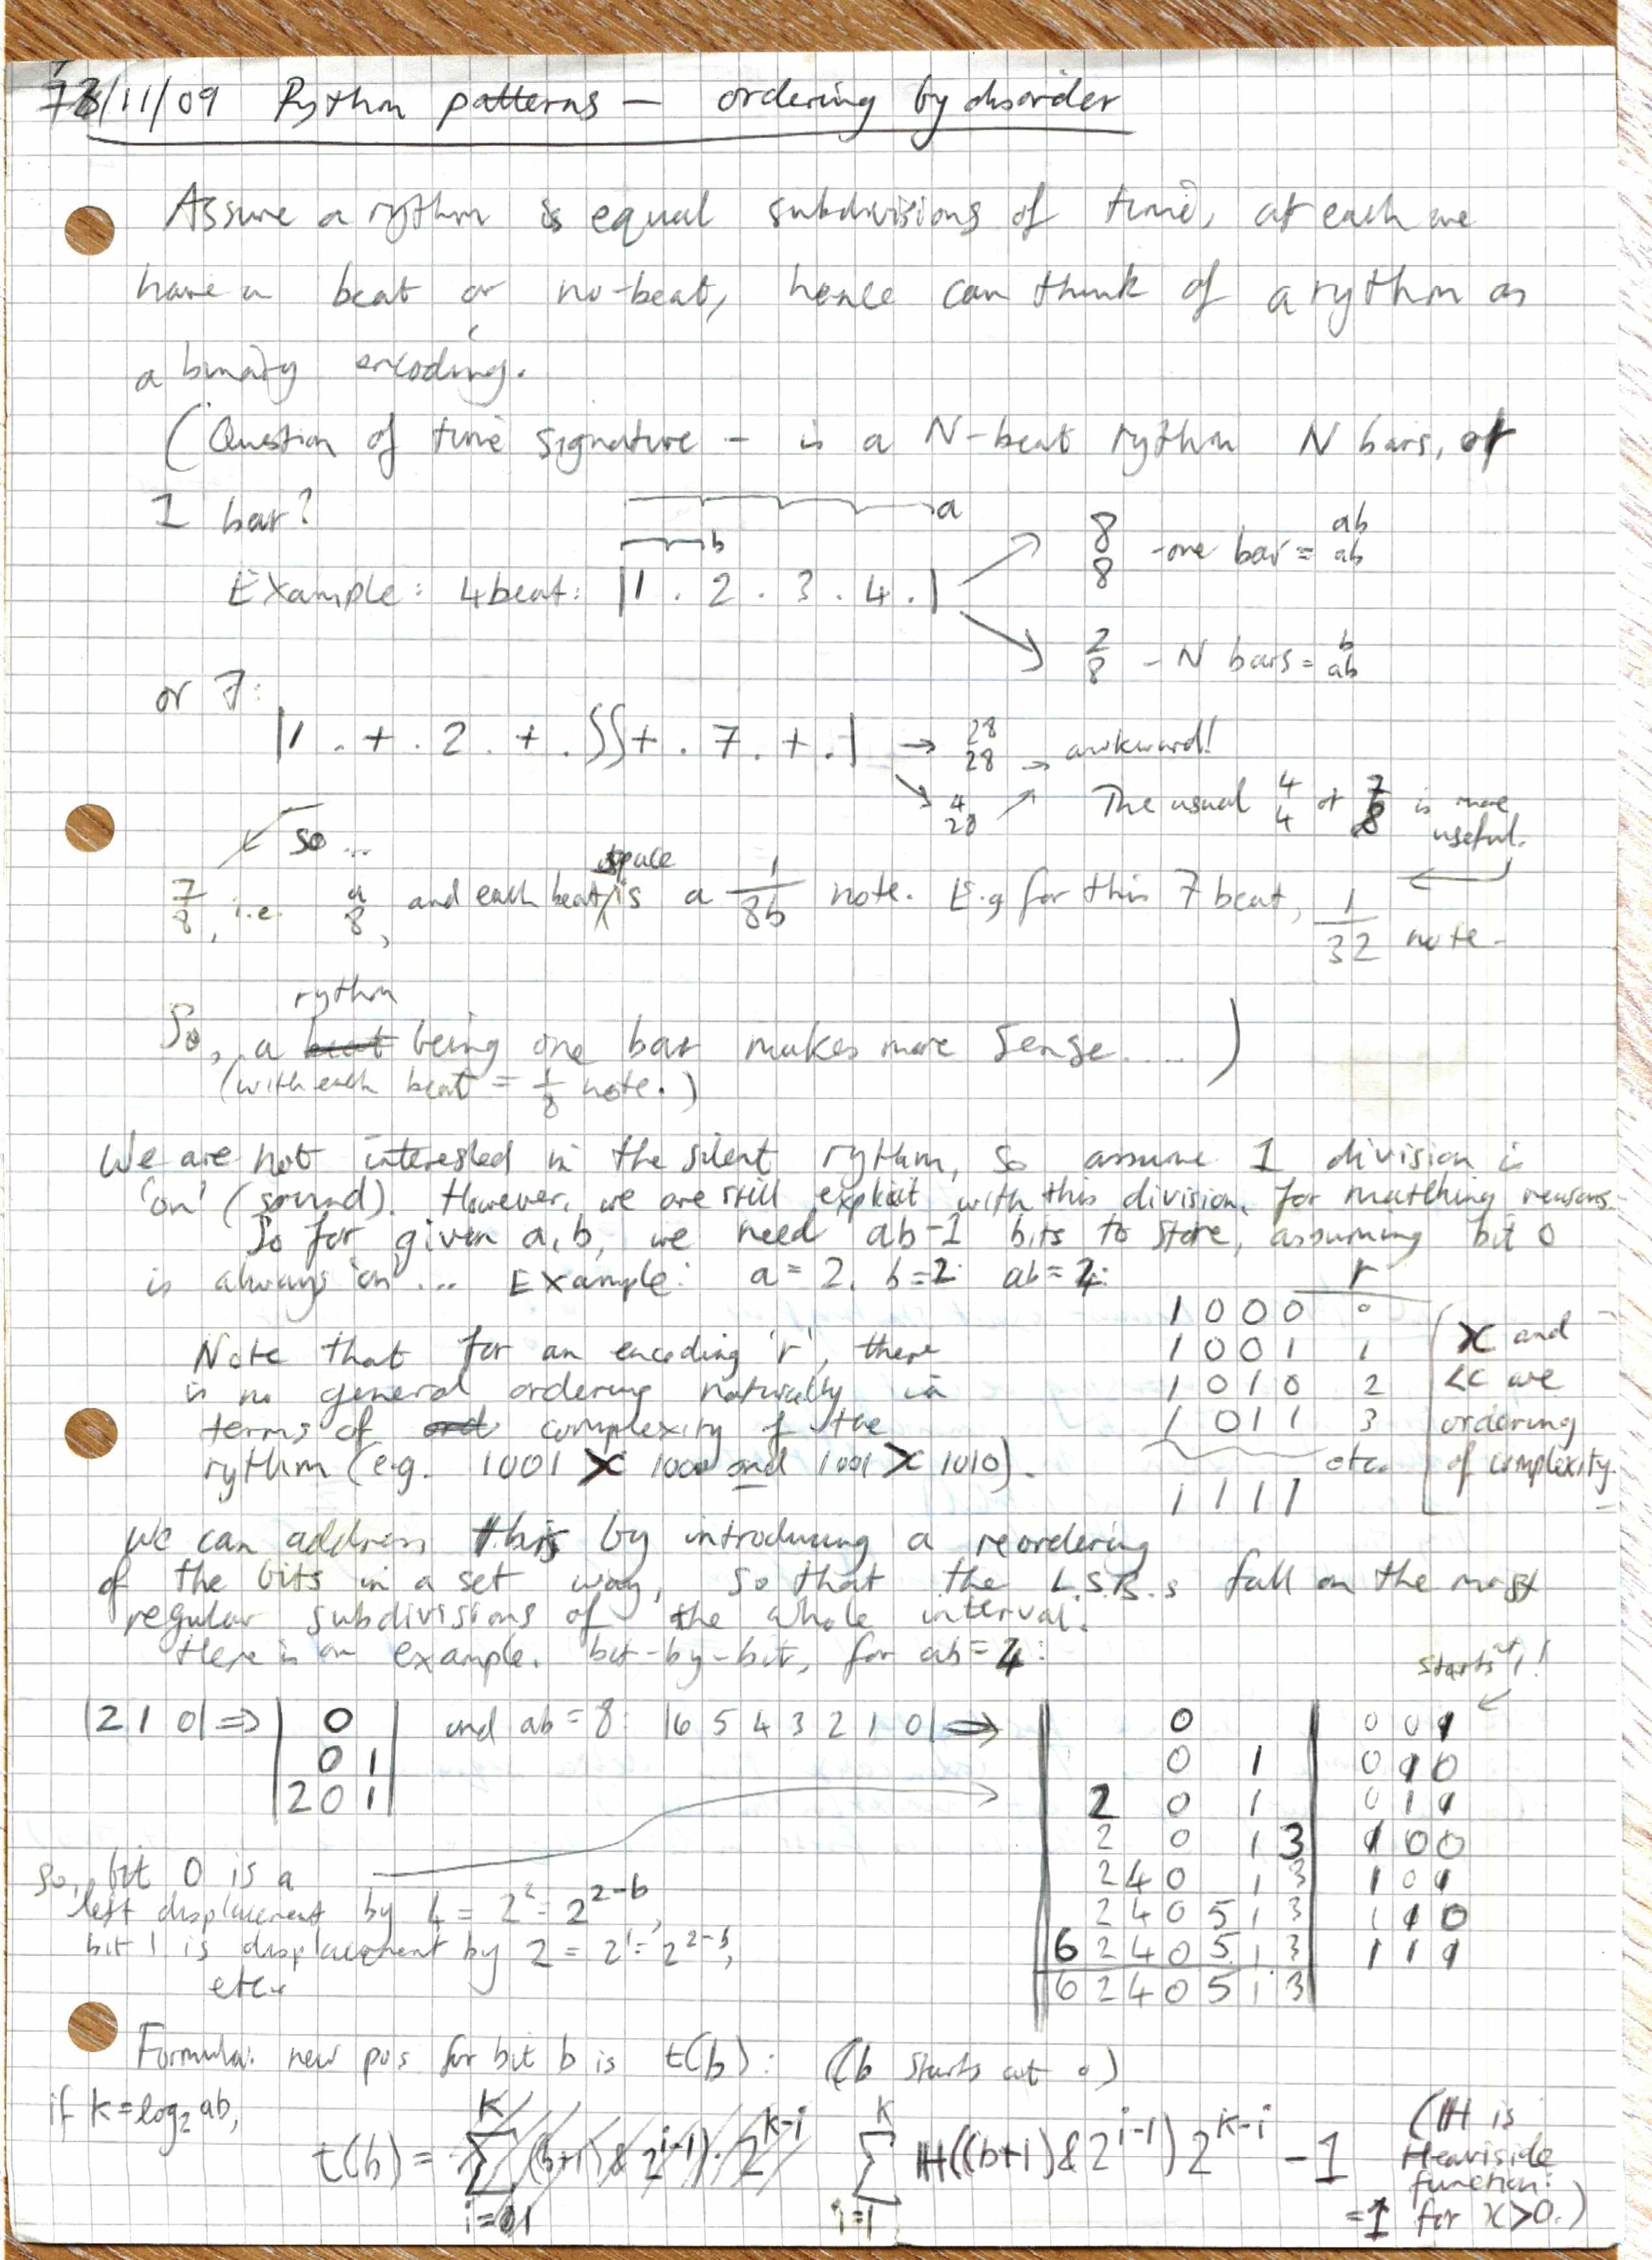 13/11/09 Rythm patterns — ordering by disorder
Assume a rythm is equal subdivisions of time, at each we
have a beat or no-beat, hence can think of a rythm as
a binary encoding.
(Question of time signature - is a N-beat rythm N bars, or
1 bar?
a
b
Example: 4 beat: |1 . 2 . 3 . 4 . |
8/8 - one bar = ab/ab
2/8 - N bars = b/ab
or 7:
|1 . + . 2 . + . ∫∫ + . 7 . + . | → 28/28 → awkward!
4/28 The usual 4/4 or 7/8 is more
useful.
so ...
7/8, i.e. a/8, and each beat space is a 1/8b note. E.g for this 7 beat, 1/32 note.
So, a beat rythm being one bar makes more sense.... )
(with each beat = 1/8 note.)
We are not interested in the silent rythm, so assume 1 division is
'on' (sound). However, we are still explicit with this division, for matching reasons.
So for given a,b, we need ab-1 bits to store, assuming bit 0
is always 'on'... Example: a = 2, b = 2 ab = 4:
r
1 0 0 0 0
1 0 0 1 1
1 0 1 0 2
1 0 1 1 3
etc.
1 1 1 1
> and
< are
ordering
of complexity.
Note that for an encoding 'r', there
is no general ordering naturally in
terms of ord complexity of the
rythm (e.g. 1001 > 1000 and 1001 > 1010).
We can address this by introducing a reordering
of the bits in a set way, so that the L.S.B.s fall on the most
regular subdivisions of the whole interval.
Here is an example, bit-by-bit, for ab = 4:
starts at 1!
|2 1 0| ⇒ | 0 | and ab = 8: |6 5 4 3 2 1 0| ⇒ 0 0 0 1
0 1 0 1 0 1 0
2 0 1 2 0 1 0 1 1
2 0 1 3 1 0 0
2 4 0 1 3 1 0 1
2 4 0 5 1 3 1 1 0
6 2 4 0 5 1 3 1 1 1
6 2 4 0 5 1 3
So, bit 0 is a
left displacement by 4 = 2² = 2^(2-b),
bit 1 is displacement by 2 = 2¹ = 2^(2-b),
etc.
Formula: new pos for bit b is t(b): (b starts at 0)
if k = log₂ ab,
t(b) = Σ_{i=1}^{K} (b+1) & 2^{i-1}) · 2^{k-i} Σ_{i=1}^{K} H((b+1) & 2^{i-1}) 2^{K-i} - 1
(H is
Heaviside
function:
=1 for x>0.)